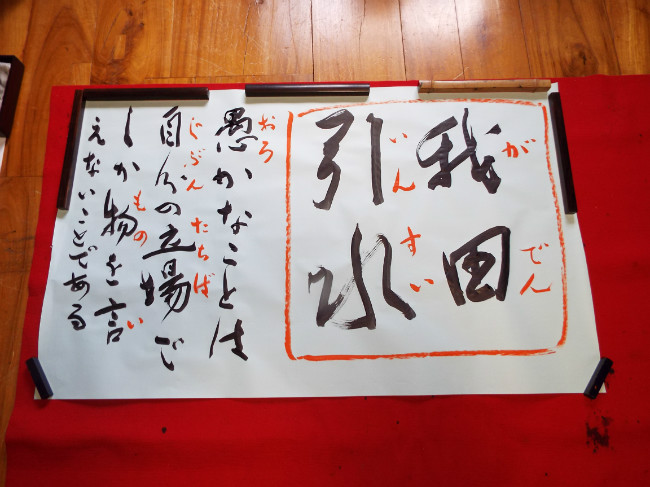 我田
がでん
引水
いんすい
愚かなことは
おろ
自分の立場で
じぶん たちば
しか物を言
もの い
えないことである